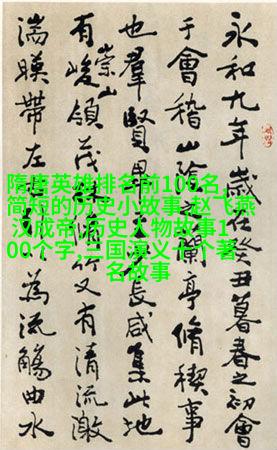 永和九年歲在癸丑暮春之初會
于會稽山陰蘭亭脩稧事
也羣賢畢長咸集此地
有崇山峻領茂林脩竹又有清流激
湍暎帶左為流觴曲水
隋唐英雄排名前100名,
简短的历史小故事,赵飞燕
汉成帝,历史人物故事1
00个字,三国演义十个著
名故事